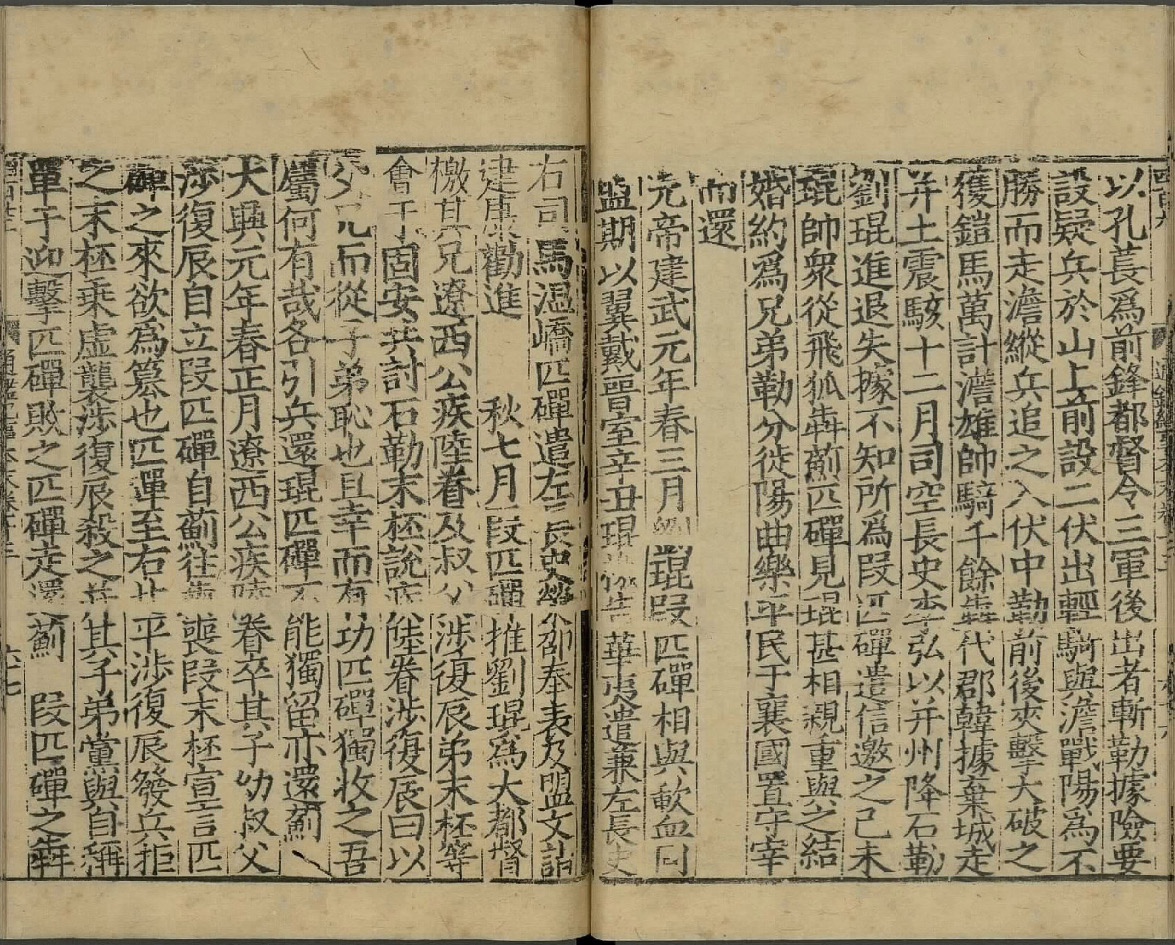 以孔萇爲前鋒都督令三軍後出者斬勒據險要
設疑兵於山上前設二伏出輕騎與澹戰陽爲不
勝而走澹縱兵追之入伏中勒前後夾擊大破之
獲鎧馬萬計澹雄帥騎千餘奔代郡韓據棄城走
并土震駭十二月司空長史李弘以并州降石勒
劉琨進退失據不知所爲段匹磾遣信邀之己未
琨帥衆從飛狐奔薊匹磾見琨甚相親重與之結
婚約爲兄弟勒分徙陽曲樂平民于襄國置守宰
而還
元帝建武元年春三月劉琨段匹磾相與歃血同
盟期以翼戴晉室辛丑琨檄告華夷遣兼左長史
右司馬溫嶠匹磾遣左長史榮邵奉表及盟文詣
建康勸進　秋七月段匹磾推劉琨爲大都督
檄其兄遼西公疾陸眷及叔父涉復辰弟末柸等
會于固安共討石勒末柸說疾陸眷涉復辰曰以
父兄而從子弟恥也且幸而有功匹磾獨收之吾
屬何有哉各引兵還琨匹磾不能獨留亦還薊
大興元年春正月遼西公疾陸眷卒其子幼叔父
涉復辰自立段匹磾自薊往奔喪段末柸宣言匹
磾之來欲爲簒也匹磾至右北平涉復辰發兵拒
之末柸乘虛襲涉復辰殺之并其子弟黨與自稱
單于迎擊匹磾敗之匹磾走還薊　段匹磾之奔